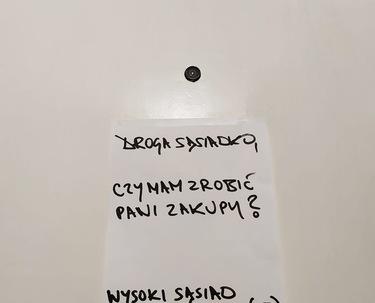 DROGA SĄSIADKO,
CZY MAM ZROBIĆ
PANI ZAKUPY?
WYSOKI SĄSIAD